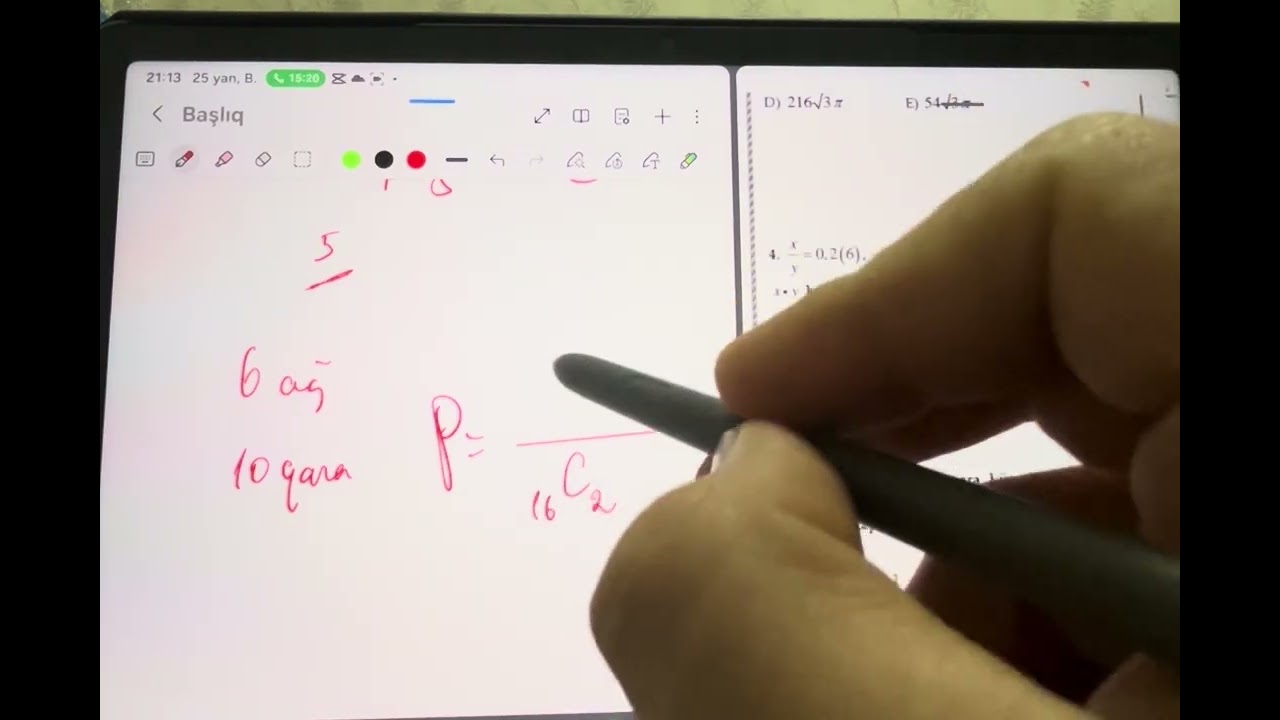 21:13 25 yan, B. 15:20
Başlıq
5
6 ağ
10 qara
P=
16C2
D) 216√3π E) 54√3π
4. x/y = 0,2(6).
x•y